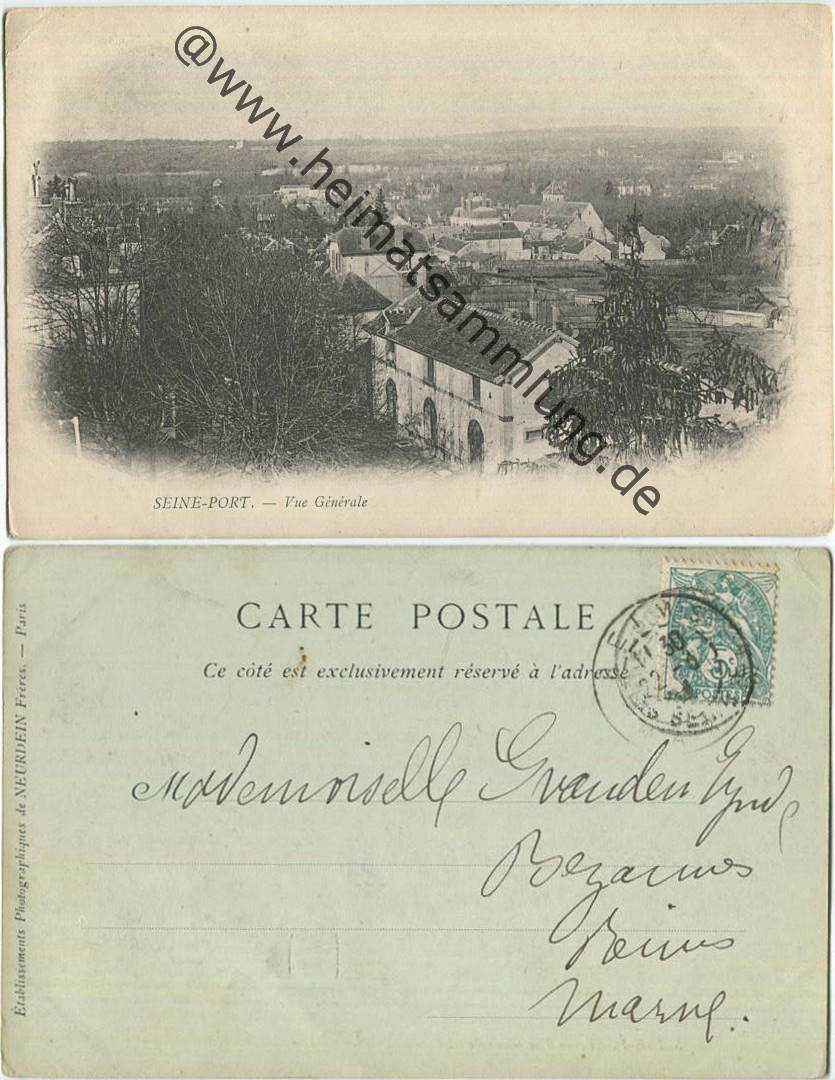 @www.heimatsammlung.de
SEINE-PORT. — Vue Générale
CARTE POSTALE
Ce côté est exclusivement réservé à l'adresse
Établissements Photographiques de NEURDEIN Frères. — Paris
POSTES
Mademoiselle Gvanden Eynde
Bezannes
Reims
Marne.